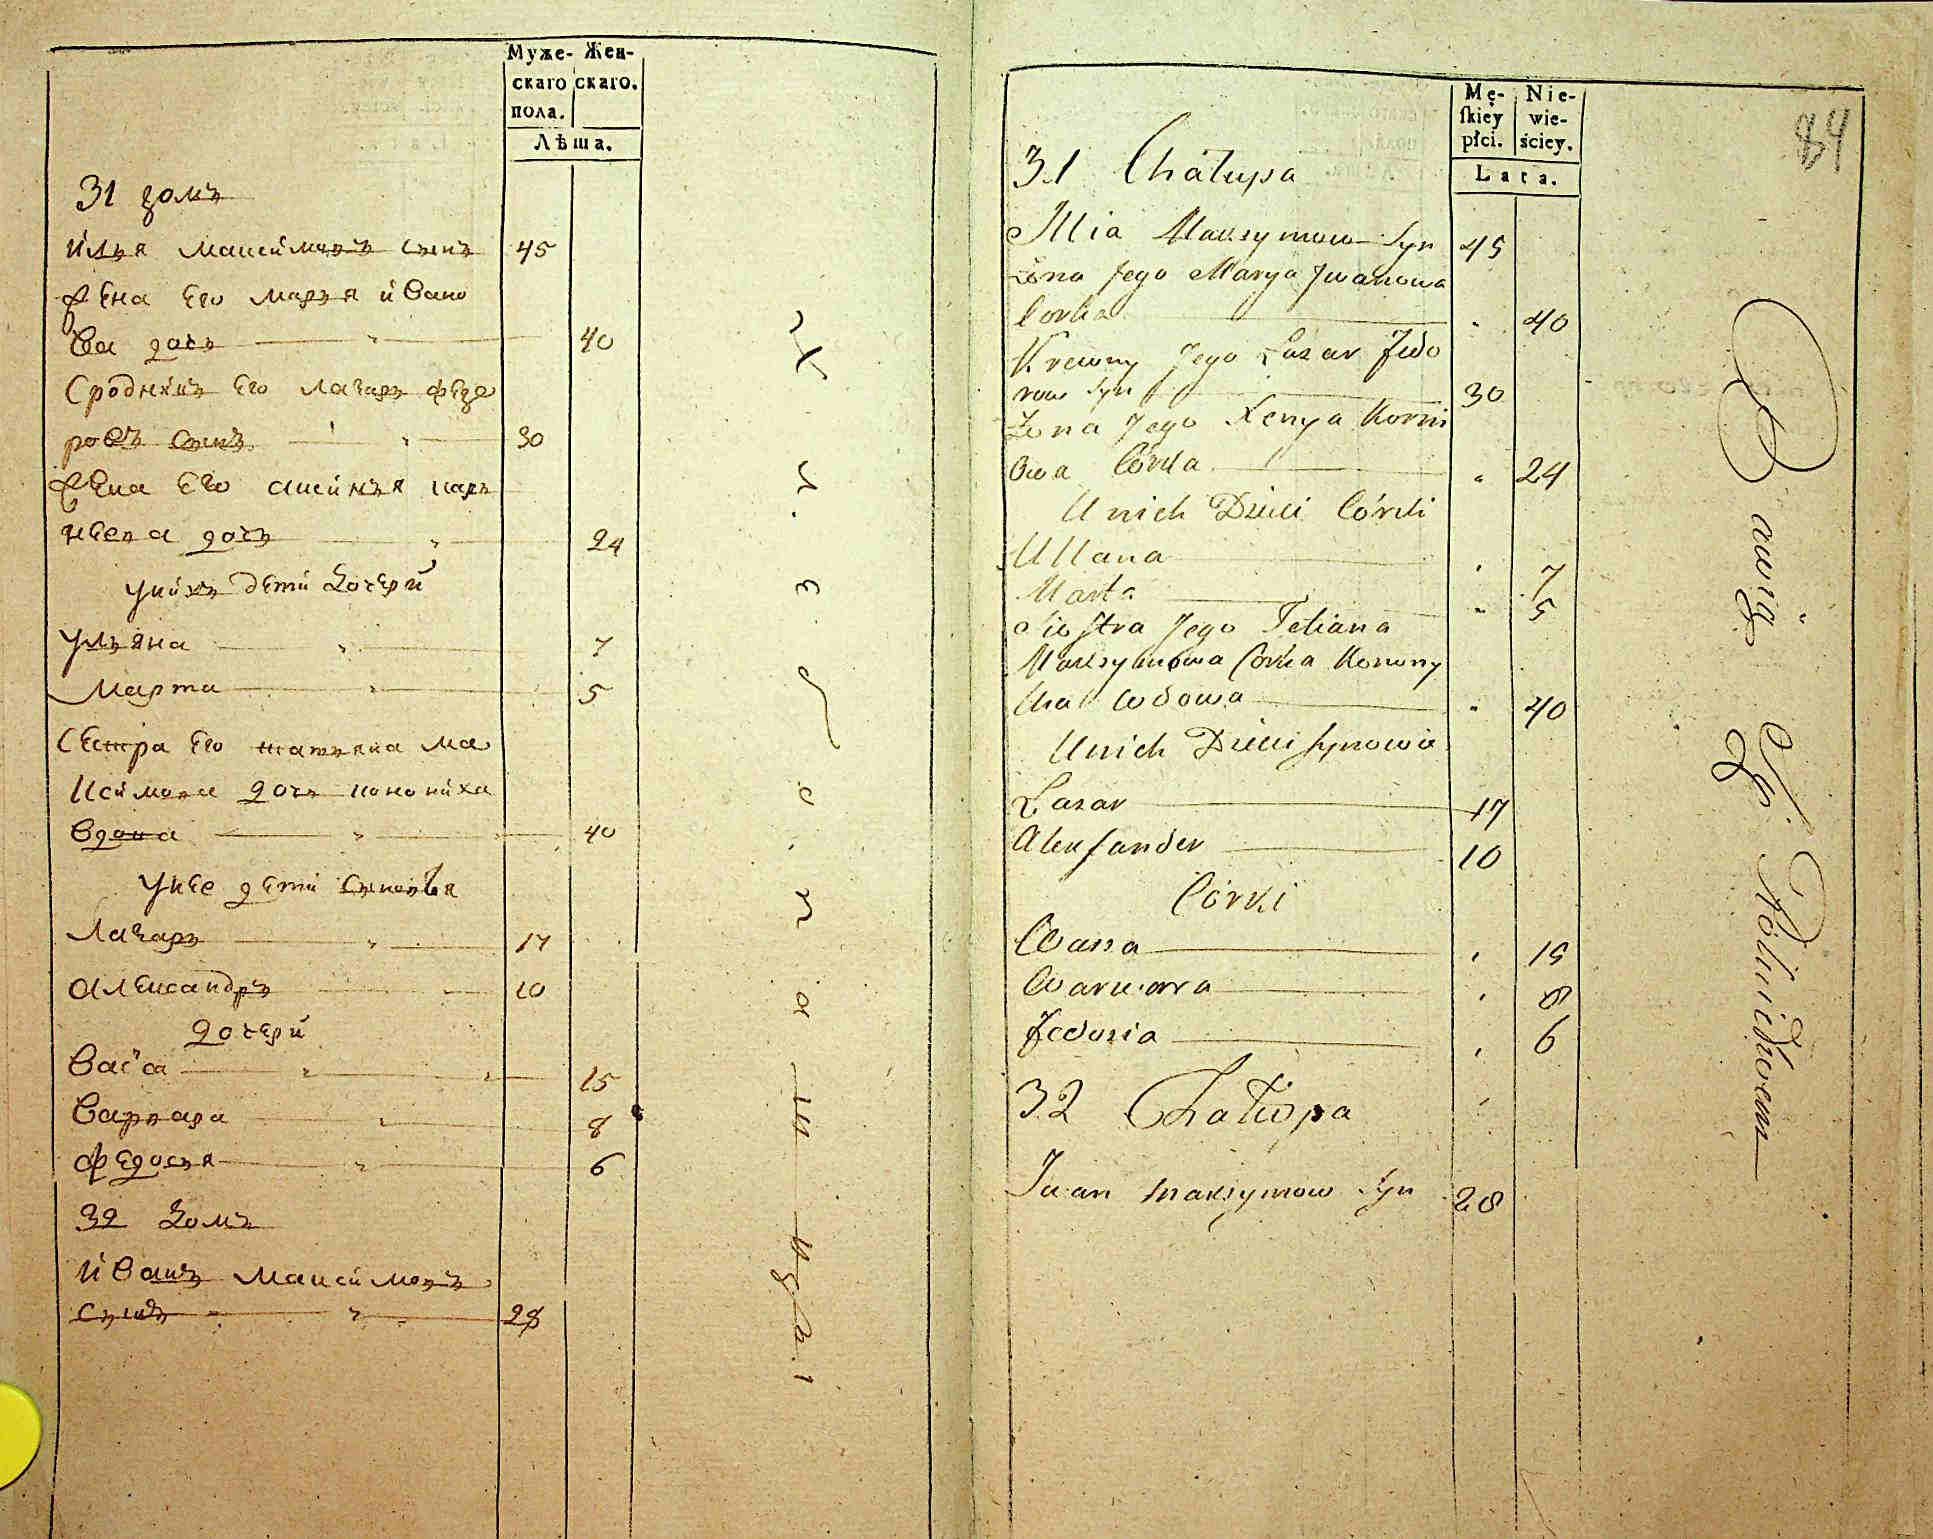 Муже- Жен-
скаго скаго.
пола.
Лѣта.
31 домъ
илья максимовъ сынъ 45
жена Его марья ивано
ва дочь 40
Сродникъ Его лазарь федо
ровъ сынъ 30
жена Его
нѣева дочь 24
уних дети дочери
ульяна 7
Марта 5
Сестра Его татьяна ма
ксимова дочь
вдова 40
унее дети сыновья
Лазарь 17
александръ 10
дочери
Васса 15
Варвара 8
федосья 6
32 домъ
иванъ максимовъ
сынъ 28
Mę- Nie-
skiey wie-
płci. ściey.
Lata.
84
31 Chałupa
Illia Maksymow Syn 45
Żona Jego Marya Jwanowa
Corka 40
Krewny Jego Łazar Fedo
row Syn 30
Żona Jego Xenya Korni
owa Córka 24
U nich Dzieci Córki
Ullana 7
Marta 5
Siostra Jego Tetiana
Maksymowa Corka Konony
cha wdowa 40
U nich Dzieci synowie
Łazar 17
Alexsander 10
Córki
Wassa 15
Warwara 8
Fedosia 6
32 Chałupa
Iwan Maksymow Syn 28